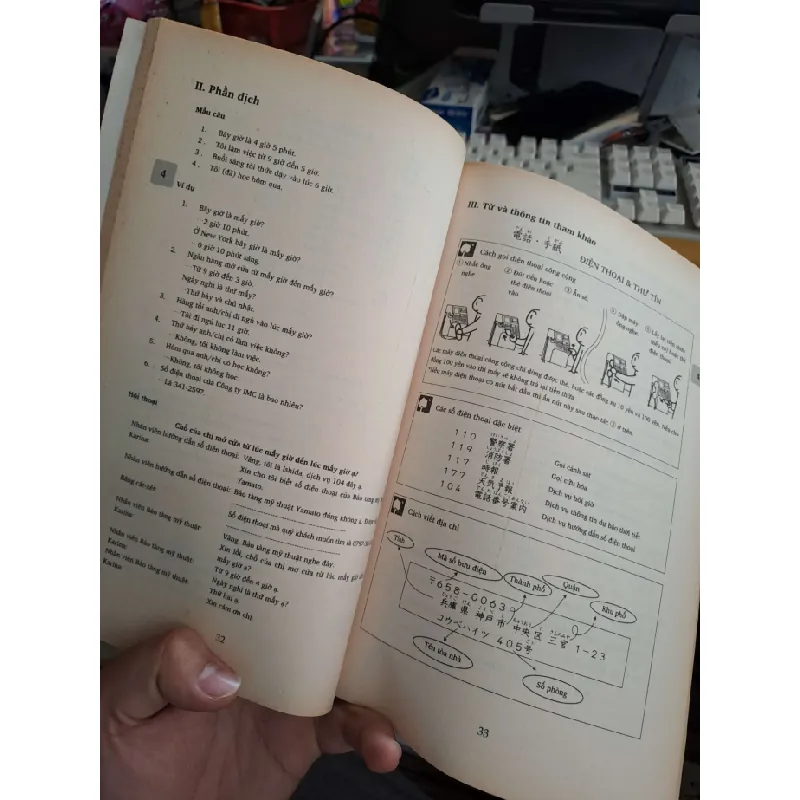 II. Phần dịch
Mẫu câu
1. Bây giờ là 4 giờ 5 phút.
2. Tôi làm việc từ 9 giờ đến 5 giờ.
3. Buổi sáng tôi thức dậy vào lúc 6 giờ.
4. Tôi (đã) học hôm qua.
4
Ví dụ
1. Bây giờ là mấy giờ?
··· 2 giờ 10 phút.
Ở New York bây giờ là mấy giờ?
6 giờ 10 phút sáng.
2. Ngân hàng mở cửa từ mấy giờ đến mấy giờ?
··· Từ 9 giờ đến 3 giờ.
Ngày nghỉ là thứ mấy?
··· Thứ bảy và chủ nhật.
3. Hàng tối anh/chị đi ngủ vào lúc mấy giờ?
··· Tôi đi ngủ lúc 11 giờ.
4. Thứ bảy anh/chị có làm việc không?
··· Không, tôi không làm việc.
5. Hôm qua anh/chị có học không?
··· Không, tôi không học.
6. Số điện thoại của Công ty IMC là bao nhiêu?
··· Là 341-2597.
Hội thoại
Chỗ của chị mở cửa từ lúc mấy giờ đến lúc mấy giờ ạ?
Nhân viên hướng dẫn số điện thoại: Vâng, tôi là Ishida, dịch vụ 104 đây ạ.
Karina:
Xin cho tôi biết số điện thoại của Bảo tàng Mỹ
Yamato.
Nhân viên hướng dẫn số điện thoại: Bảo tàng mỹ thuật Yamato đúng không ạ.
Số điện thoại mà quý khách muốn tìm là
Nhân viên bảo tàng mỹ thuật:
Vâng. Bảo tàng mỹ thuật nghe đây.
Karina:
Xin lỗi, chỗ của chị mở cửa từ lúc mấy giờ
mấy giờ ạ?
Nhân viên bảo tàng mỹ thuật:
Từ 9 giờ đến 4 giờ ạ.
Karina:
Ngày nghỉ là thứ mấy ạ?
Nhân viên bảo tàng mỹ thuật:
Thứ hai ạ.
Karina:
Xin cảm ơn chị.
32
III. Từ và thông tin tham khảo
電話・手紙
ĐIỆN THOẠI & THƯ TÍN
Cách gọi điện thoại công cộng
① Nhấc ống nghe
② Đút tiền hoặc thẻ điện thoại vào
③ Ấn số
④ Đặt máy
Các số điện thoại đặc biệt
110 警察署 Gọi cảnh sát
119 消防署 Gọi cứu hỏa
117 時報 Dịch vụ hỏi giờ
177 天気予報 Dịch vụ thông tin dự báo thời tiết
104 電話番号案内 Dịch vụ hướng dẫn số điện thoại
Cách viết địa chỉ
Tỉnh
Mã số bưu điện
Thành phố
Quận
Khu phố
〒658-0063
兵庫県 神戸市 中央区 三宮 1-23
コウベハイツ 405号
Tên tòa nhà
Số phòng
33